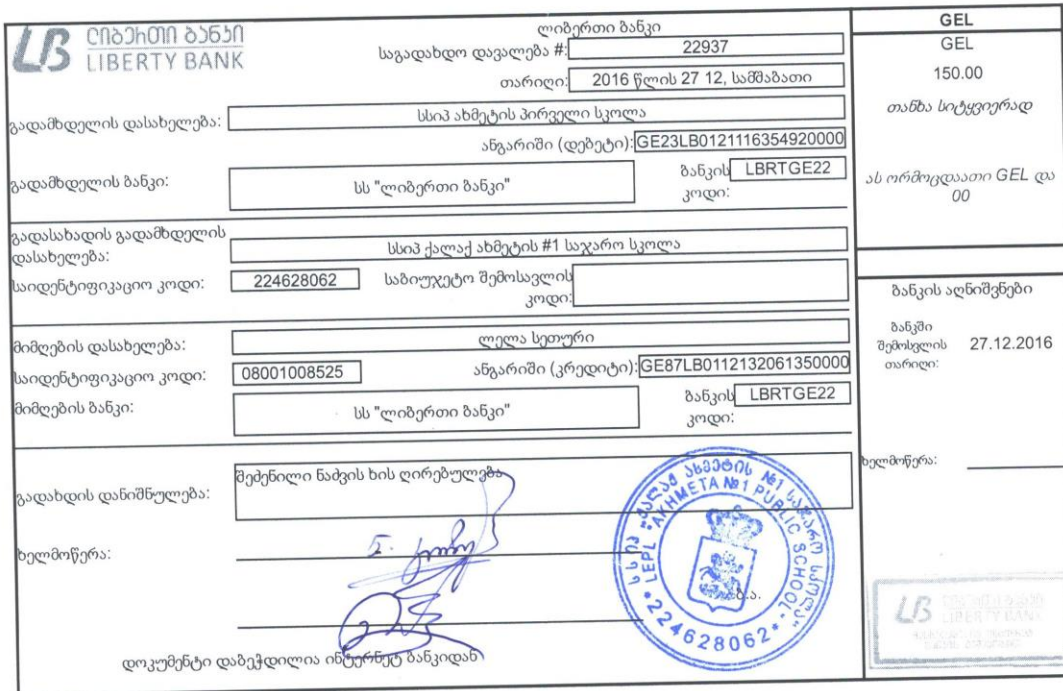 ლიბერთი ბანკი
LIBERTY BANK
ლიბერთი ბანკი
საგადახდო დავალება #: 22937
თარიღი: 2016 წლის 27 12, სამშაბათი
გადამხდელის დასახელება: სსიპ ახმეტის პირველი სკოლა
ანგარიში (დებეტი): GE23LB0121116354920000
გადამხდელის ბანკი: სს "ლიბერთი ბანკი" ბანკის კოდი: LBRTGE22
გადასახადის გადამხდელის
დასახელება: სსიპ ქალაქ ახმეტის #1 საჯარო სკოლა
საიდენტიფიკაციო კოდი: 224628062 საბიუჯეტო შემოსავლის
კოდი:
მიმღების დასახელება: ლელა სეთური
საიდენტიფიკაციო კოდი: 08001008525 ანგარიში (კრედიტი): GE87LB0112132061350000
მიმღების ბანკი: სს "ლიბერთი ბანკი" ბანკის კოდი: LBRTGE22
გადახდის დანიშნულება: შეძენილი ნაძვის ხის ღირებულება
ხელმოწერა:
ბ.ა.
დოკუმენტი დაბეჭდილია ინტერნეტ ბანკიდან
GEL
GEL
150.00
თანხა სიტყვიერად
ას ორმოცდაათი GEL და
00
ბანკის აღნიშვნები
ბანკში
შემოსვლის 27.12.2016
თარიღი:
ხელმოწერა:
სსიპ "ქალაქ ახმეტის №1 საჯარო სკოლა"
LEPL "AKHMETA №1 PUBLIC SCHOOL"
224628062
LIBERTY BANK